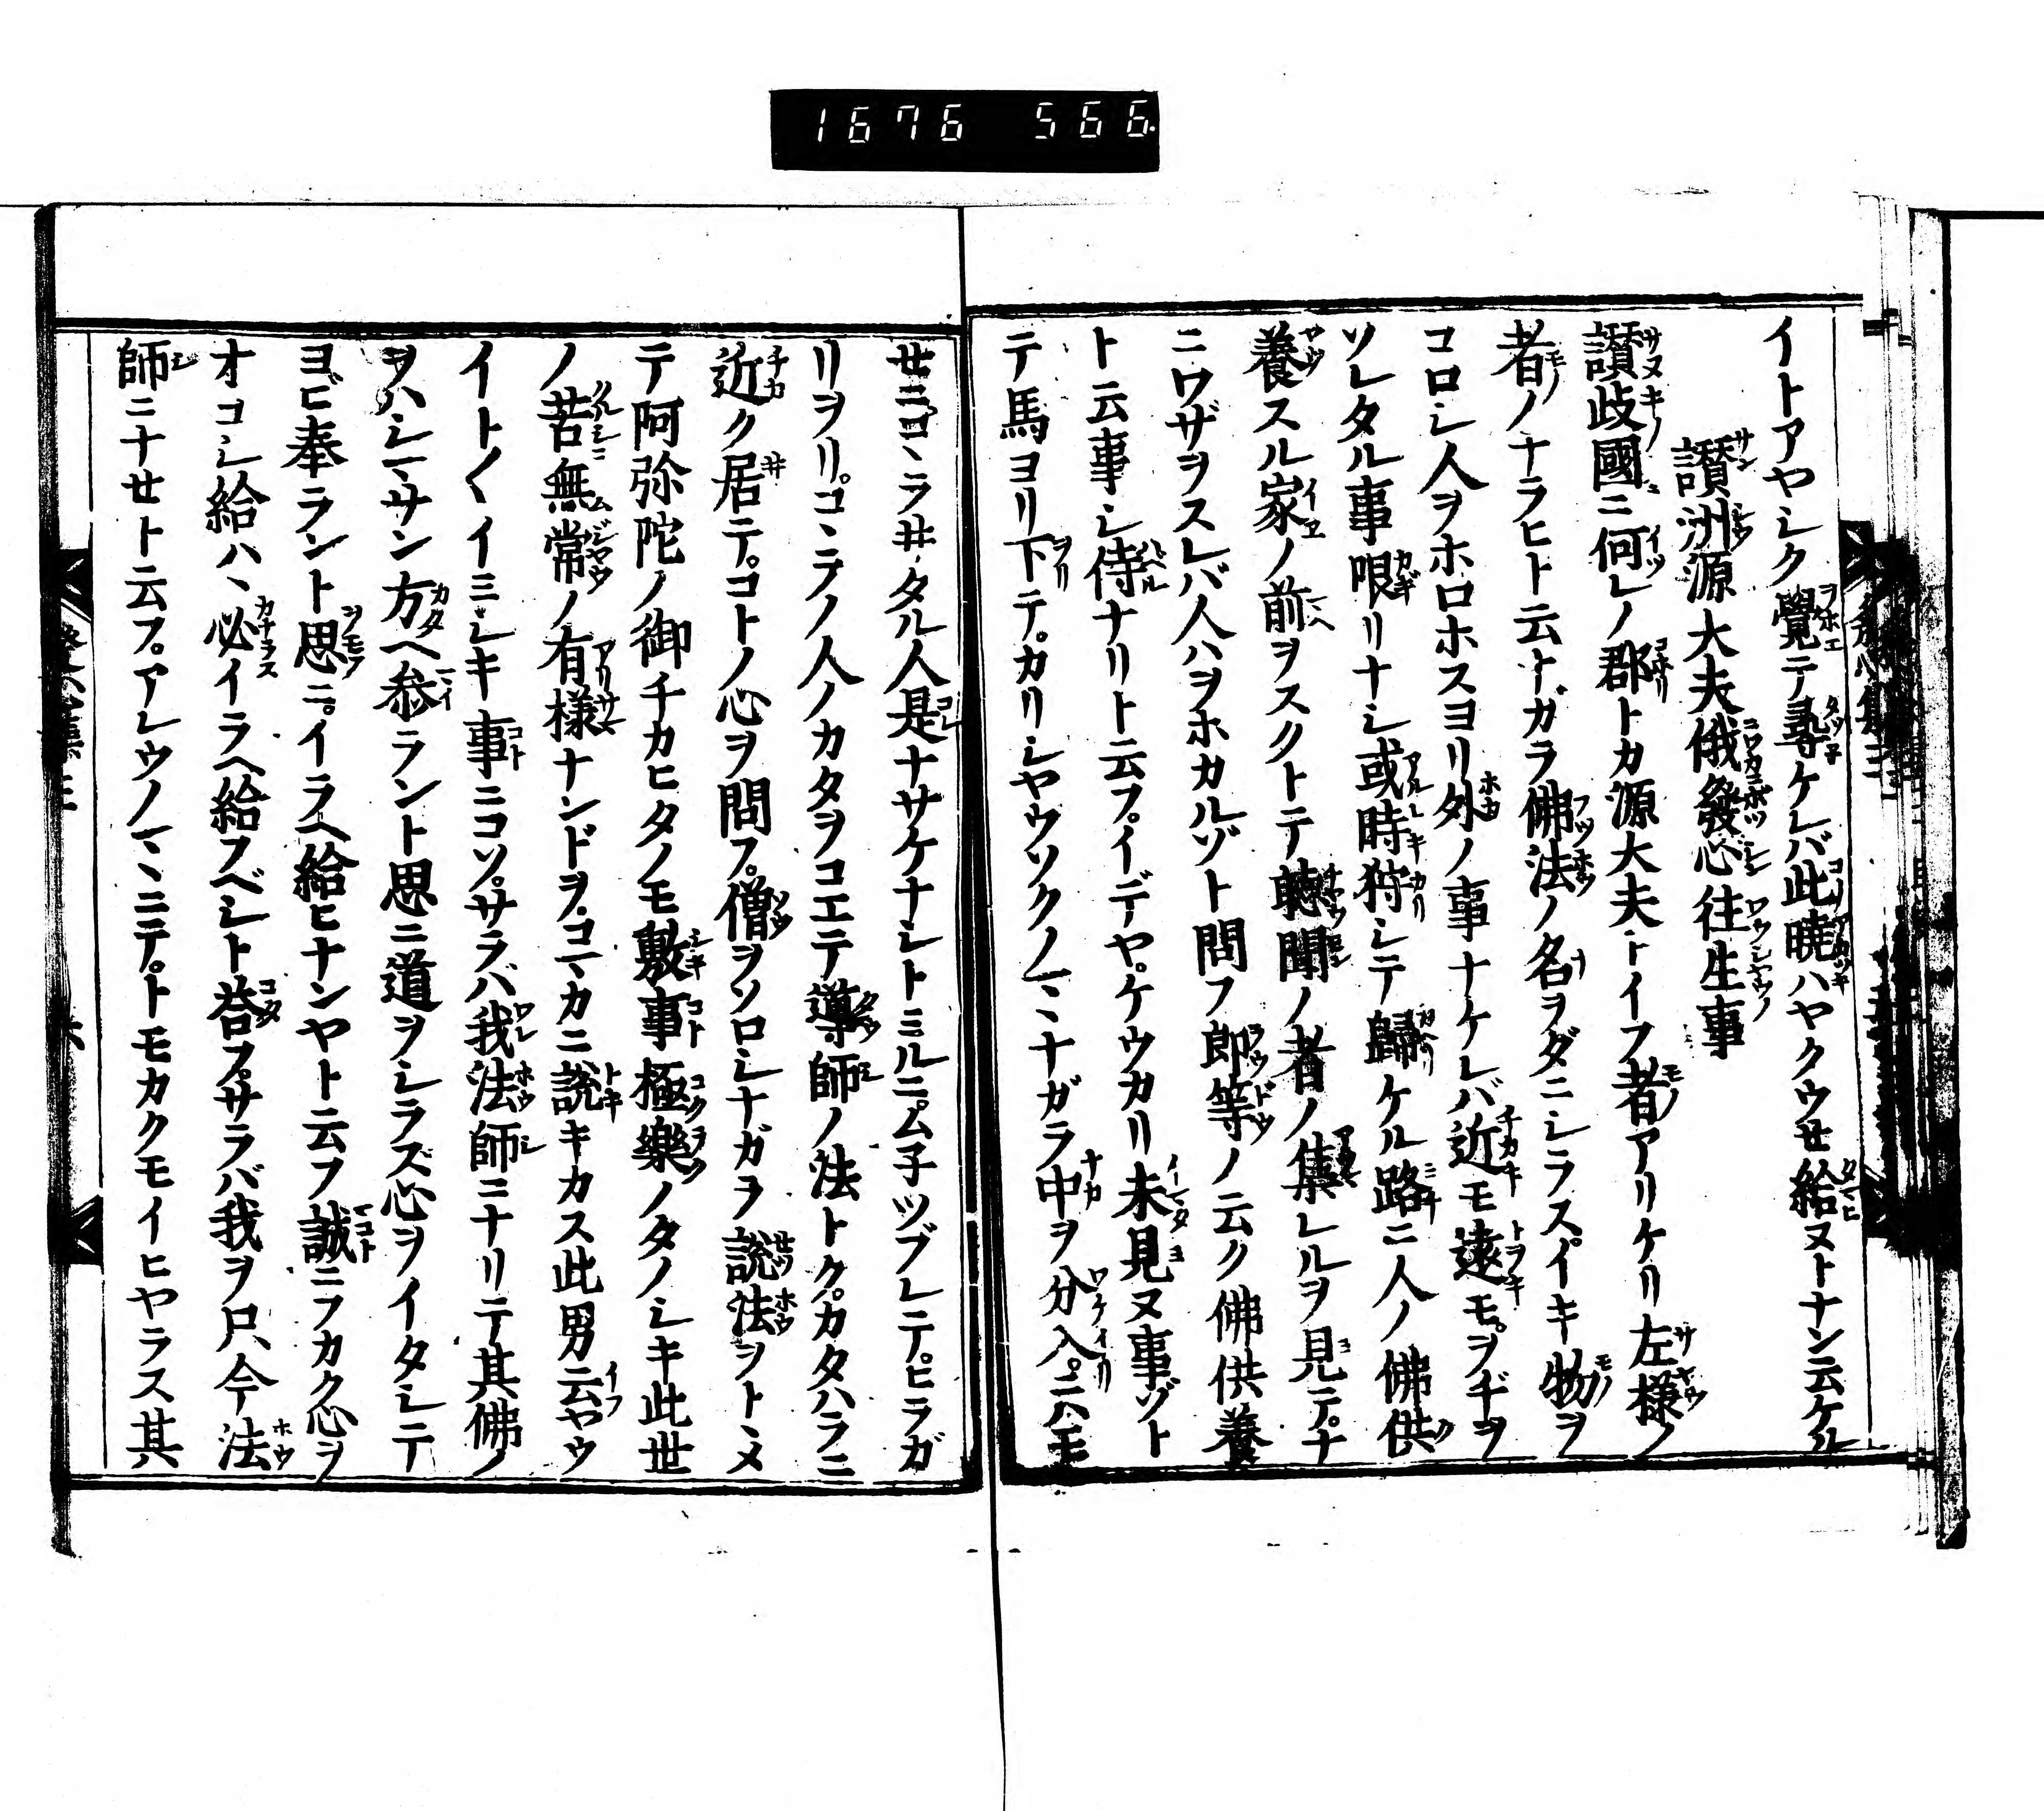 1676 566.
イトアヤシク覺テ尋ケレバ此暁ハヤクウせ給ヌトナン云ケル
讃洲源大夫俄發心往生事
讃歧國ニ何レノ郡トカ源大夫トイフ者アリケリ左様ノ
者ノナラヒト云ナガラ佛法ノ名ヲダニシラス。イキ物ヲ
コロシ人ヲホロホスヨリ外ノ事ナケレバ近モ遠モ。ヲヂヲ
ソレタル事限リナシ或時狩シテ歸ケル路ニ人ノ佛供
養スル家ノ前ヲスクトテ聴聞ノ者ノ集レルヲ見テ。ナ
ニワザヲスレバ人ハヲホカルゾト問フ郎等ノ云ク佛供養
ト云事シ侍ナリト云フ。イデヤ。ケウカリ未見ヌ事ゾト
テ馬ヨリ下テ。カリシヤウソクノマヽナガラ中ヲ分入。
せニコヽラ井タル人是ナサケナシトミルニ。ム子ツブレテ。ヒラガ
リヲリ。コヽラノ人ノカタヲコエテ導師ノ法トク。カタハラニ
近ク居テ。コトノ心ヲ問フ。僧ヲソロシナガヲ説法ヲトヽメ
テ阿弥陀ノ御チカヒタノモ敷事極樂ノタノシキ此世
ノ苦無常ノ有様ナンドヲ。コマカニ説キカス此男云ヤウ
イト〱イミシキ事ニコソ。サラバ我法師ニナリテ其佛ノ
ヲハシマサン方ヘ参ラント思ニ道ヲシラズ心ヲイタシテ
ヨビ奉ラント思ニ。イラヘ給ヒナンヤト云フ誠ニフカク心ヲ
オコシ給ハヽ必イラヘ給フベシト荅フ。サラバ我ヲ只今法
師ニナせト云フ。アレウノマヽニテ。トモカクモイヒヤラス其